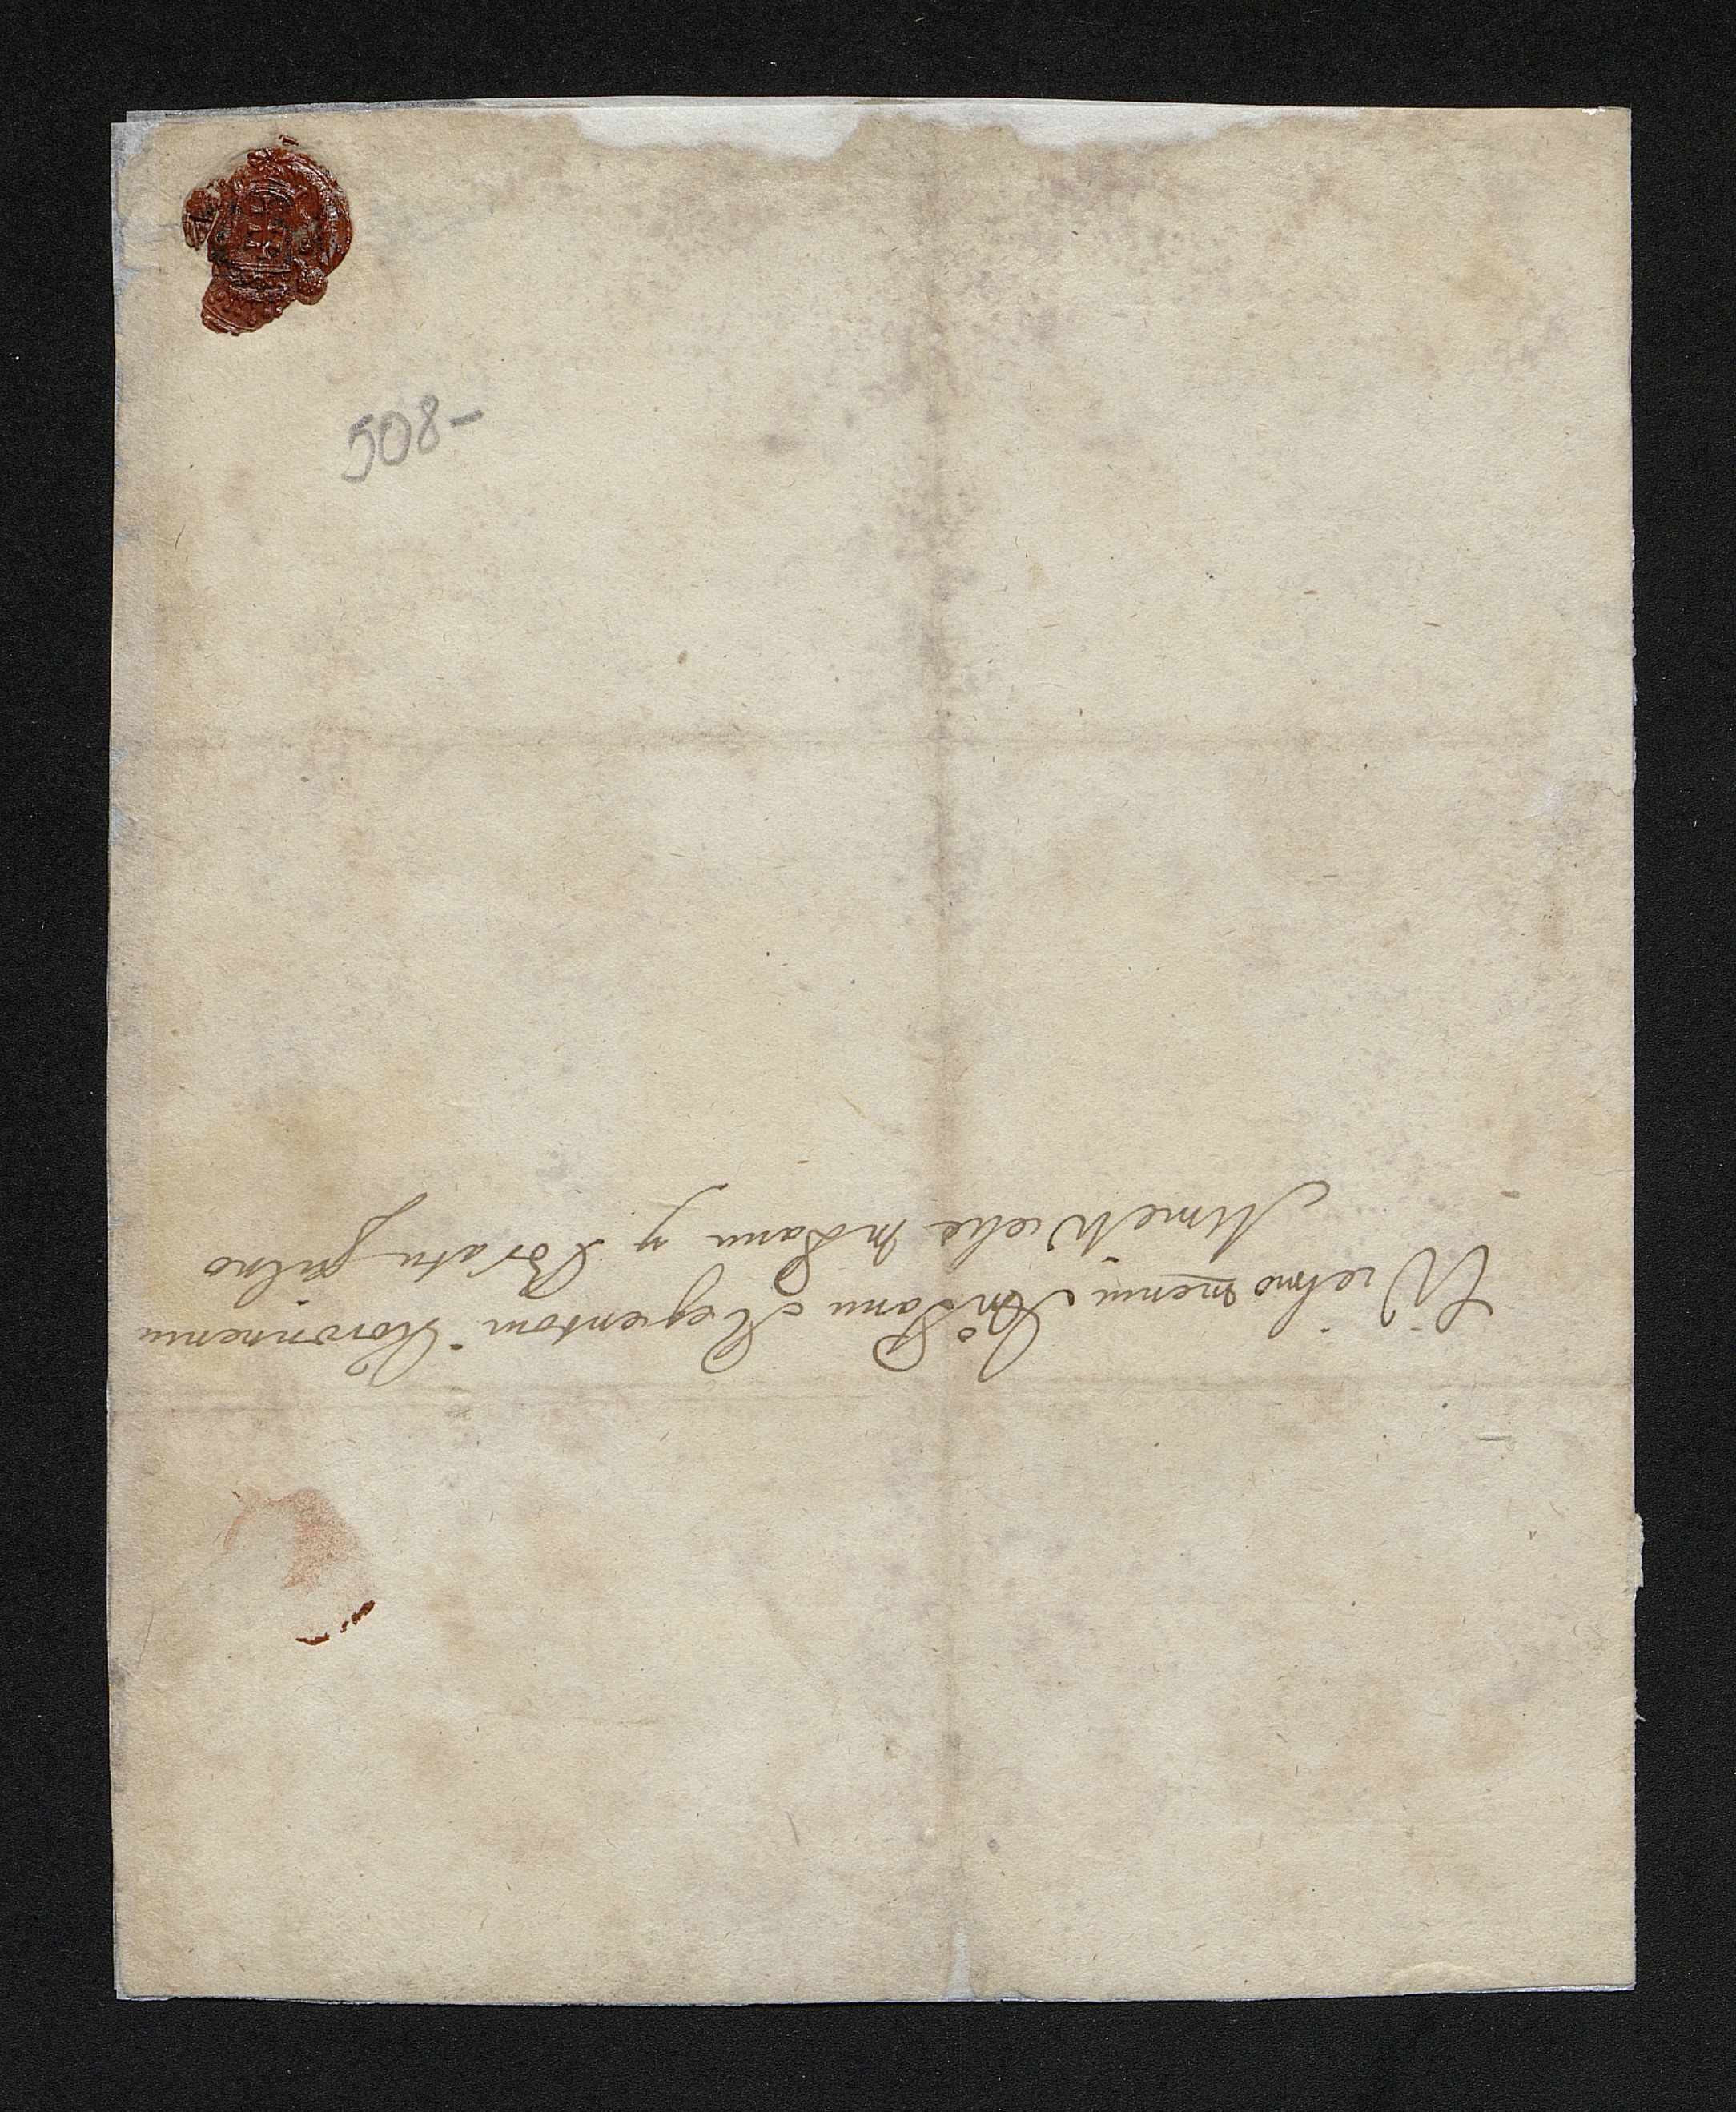 508-
Wielmożnemu Jmć Panu Regentowi Koronnemu
Mmć Wielce Panu y Bratu pilno